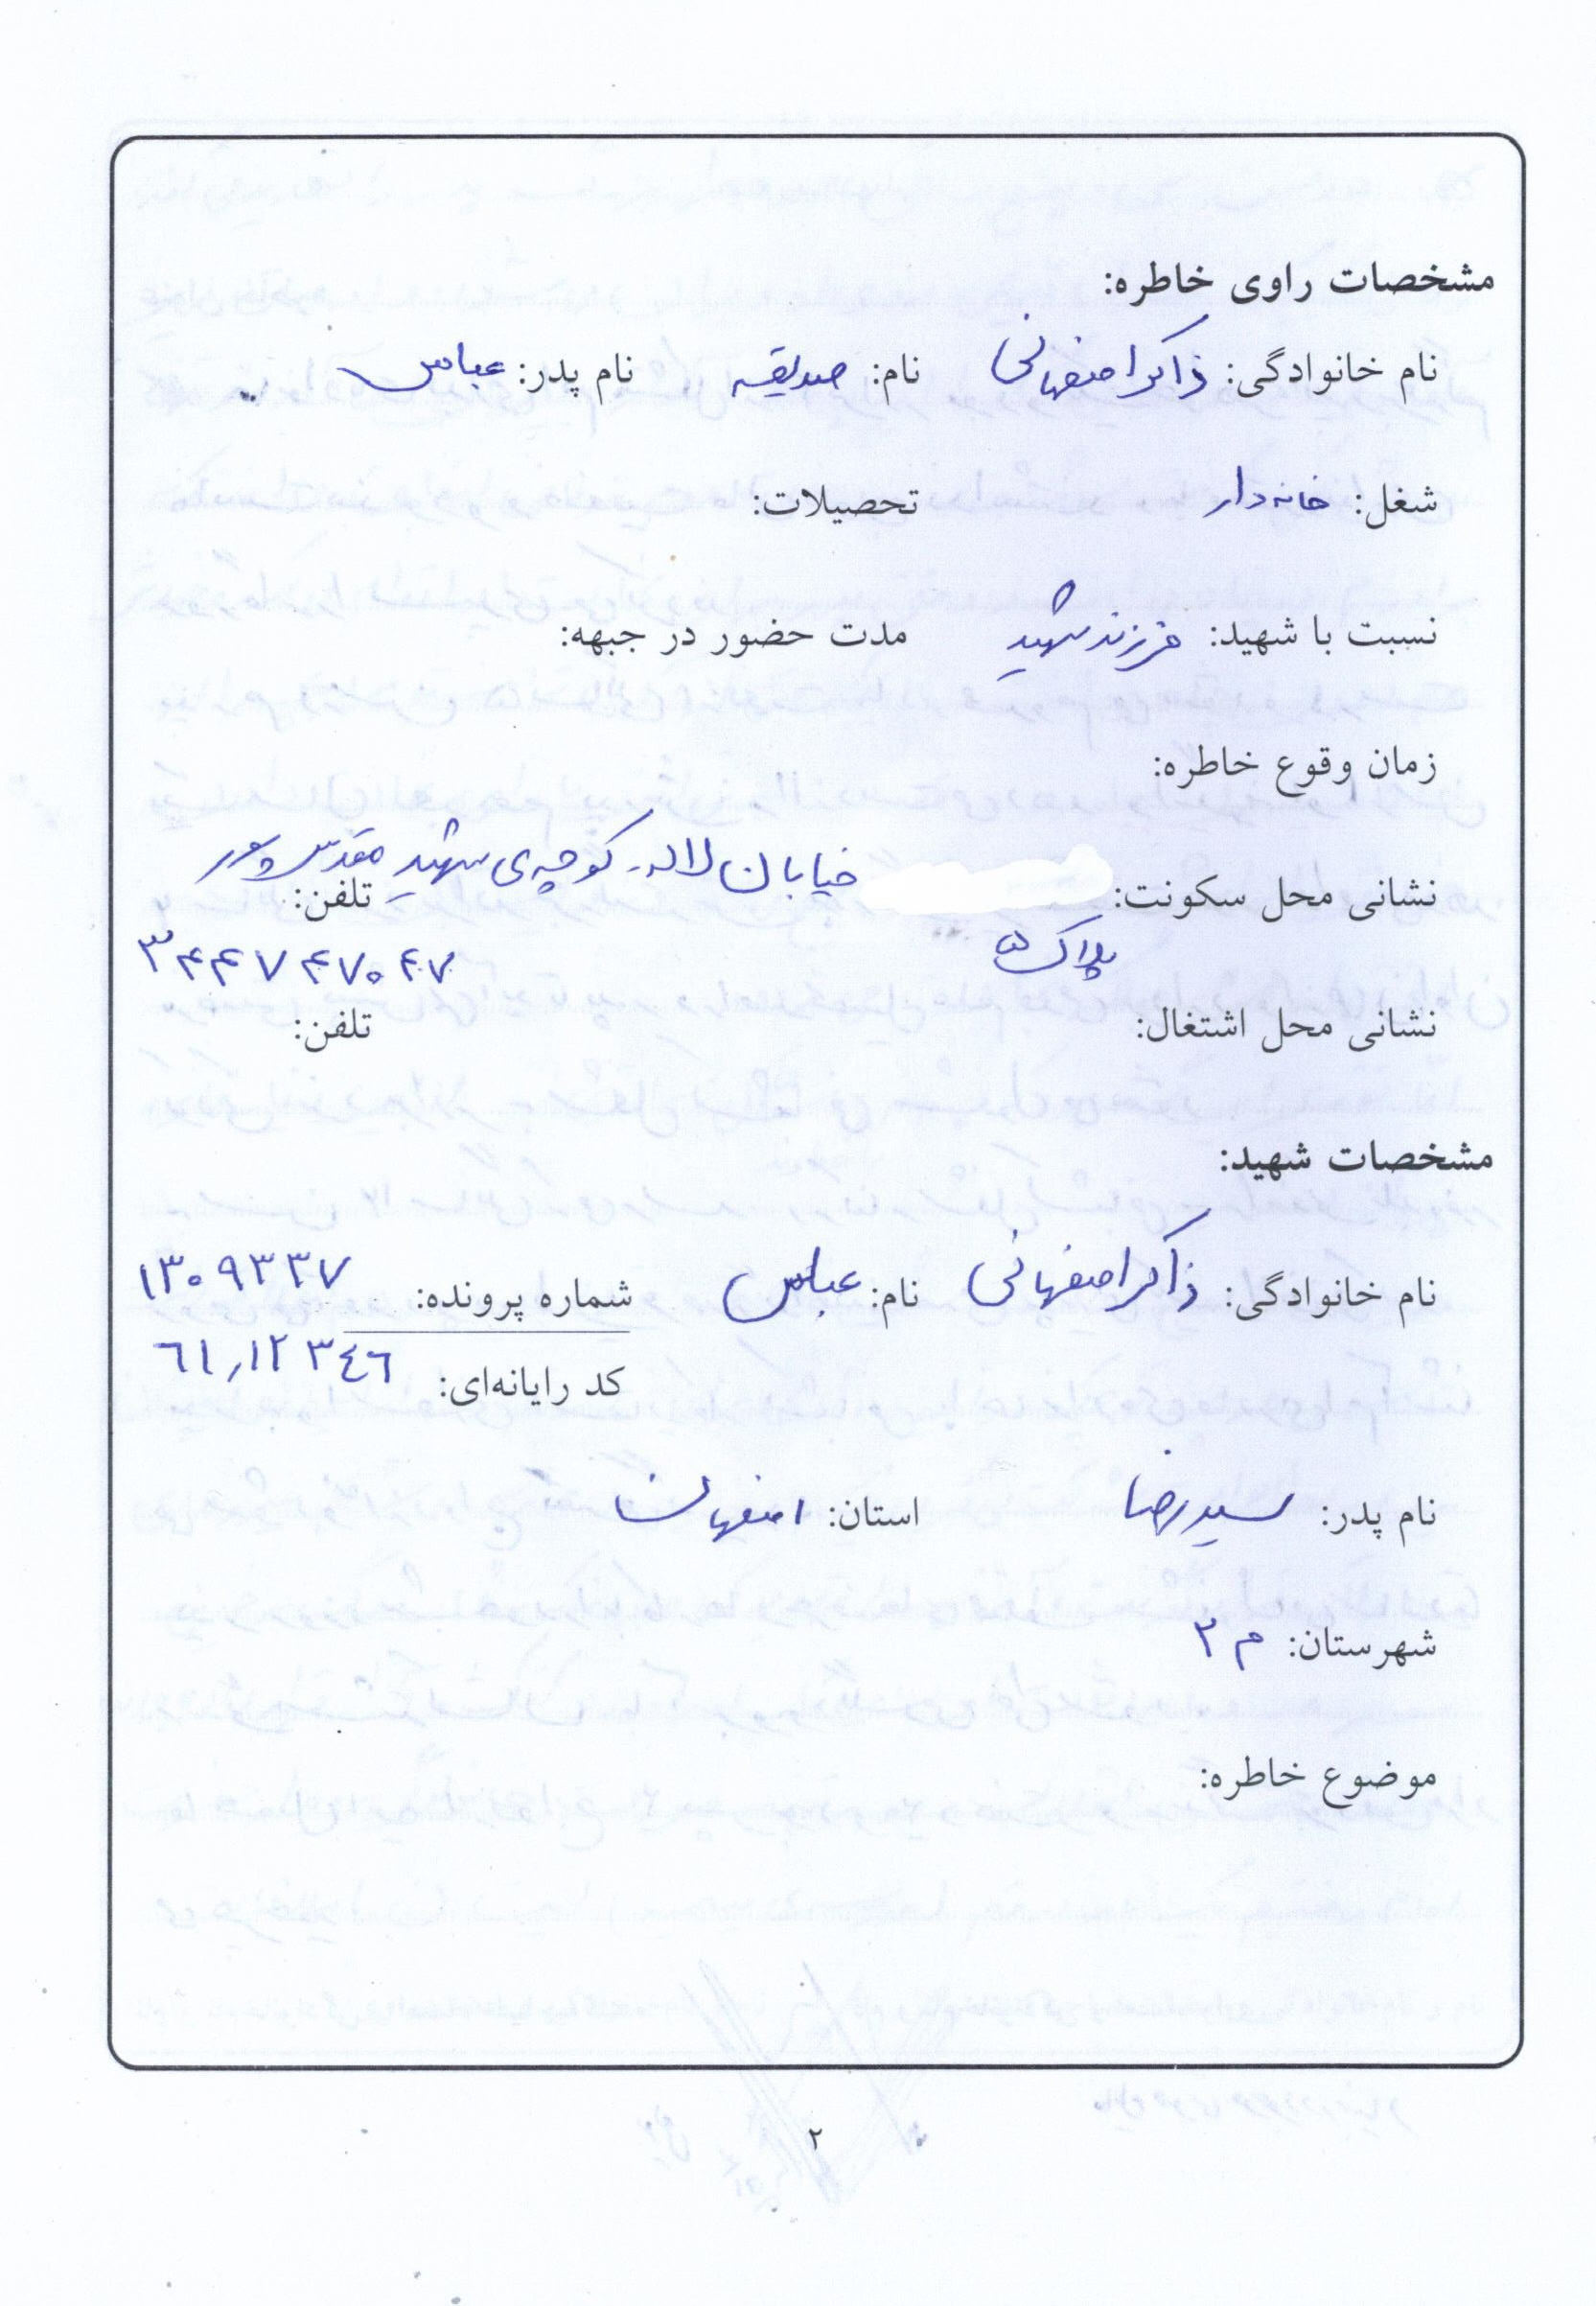 مشخصات راوی خاطره:
نام خانوادگی: ذاکر اصفهانی نام: صدیقه نام پدر: عباس
شغل: خانه‌دار تحصیلات:
نسبت با شهید: فرزند شهید مدت حضور در جبهه:
زمان وقوع خاطره:
نشانی محل سکونت: خیابان لاله - کوچه‌ی شهید مقدس پور تلفن:
پلاک ۵
نشانی محل اشتغال: تلفن:
مشخصات شهید:
نام خانوادگی: ذاکر اصفهانی نام: عباس شماره پرونده: ۱۳۰۹۳۳۷
کد رایانه‌ای: ٦١٫١٢٣٤٦
نام پدر: سیدرضا استان: اصفهان
شهرستان: م ۲
موضوع خاطره:
۲